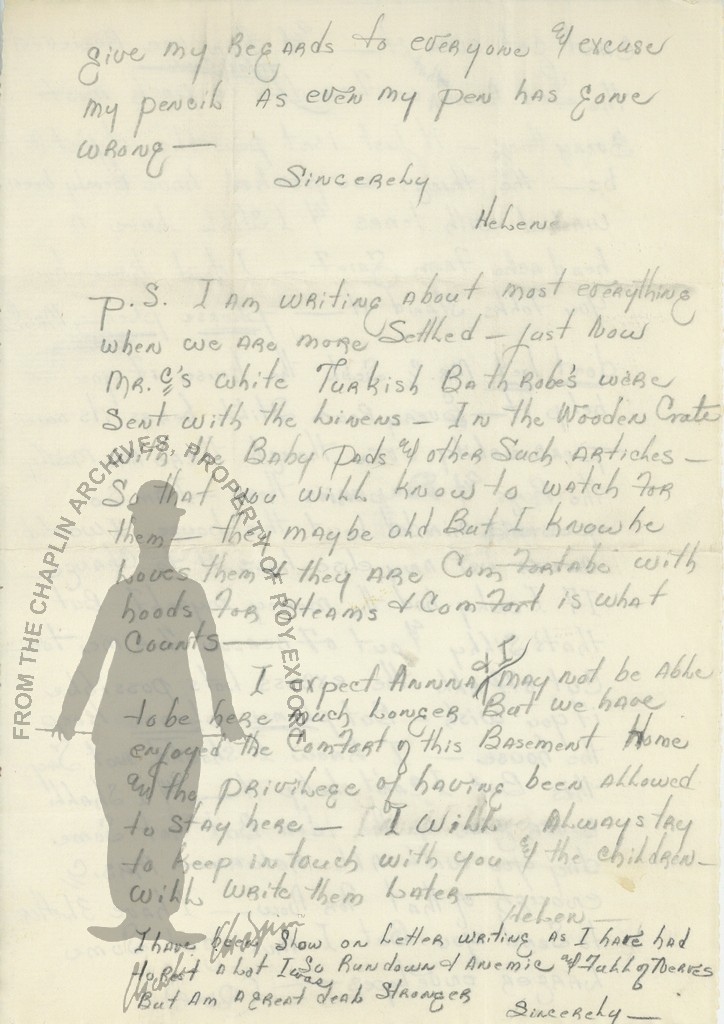 give my Regards to everyone & excuse
my pencil as even my pen has gone
wrong —
Sincerely
Helene
P.S. I am writing about most everything
when we are more Settled — just Now
Mr. C's white Turkish Bath Robe's were
Sent with the Linens — In the Wooden Crate
with the Baby Pads & other Such Articles —
So that you will know to watch For
them — they maybe old But I know he
Loves them & they are Comfortabe with
hoods For Steams & Comfort is what
Counts —
I expect Annna & I may not be Able
to be here much Longer But we have
enjoyed the Comfort of this Basement Home
& the privilege of having been Allowed
to Stay here — I Will Always try
to keep in touch with you & the children —
will write them Later —
Helen —
I have been Slow on Letter writing as I have had
to Rest a Lot I was So Rundown & Anemic & Full of Nerves
But Am a great deal Stronger
Sincerely —
FROM THE CHAPLIN ARCHIVES, PROPERTY OF ROY EXPORT